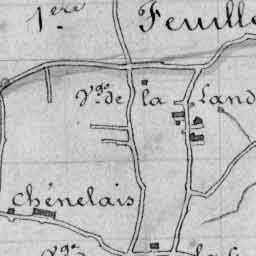 1.ère Feuille
V.ge de la Land
Chénelais
V.ge